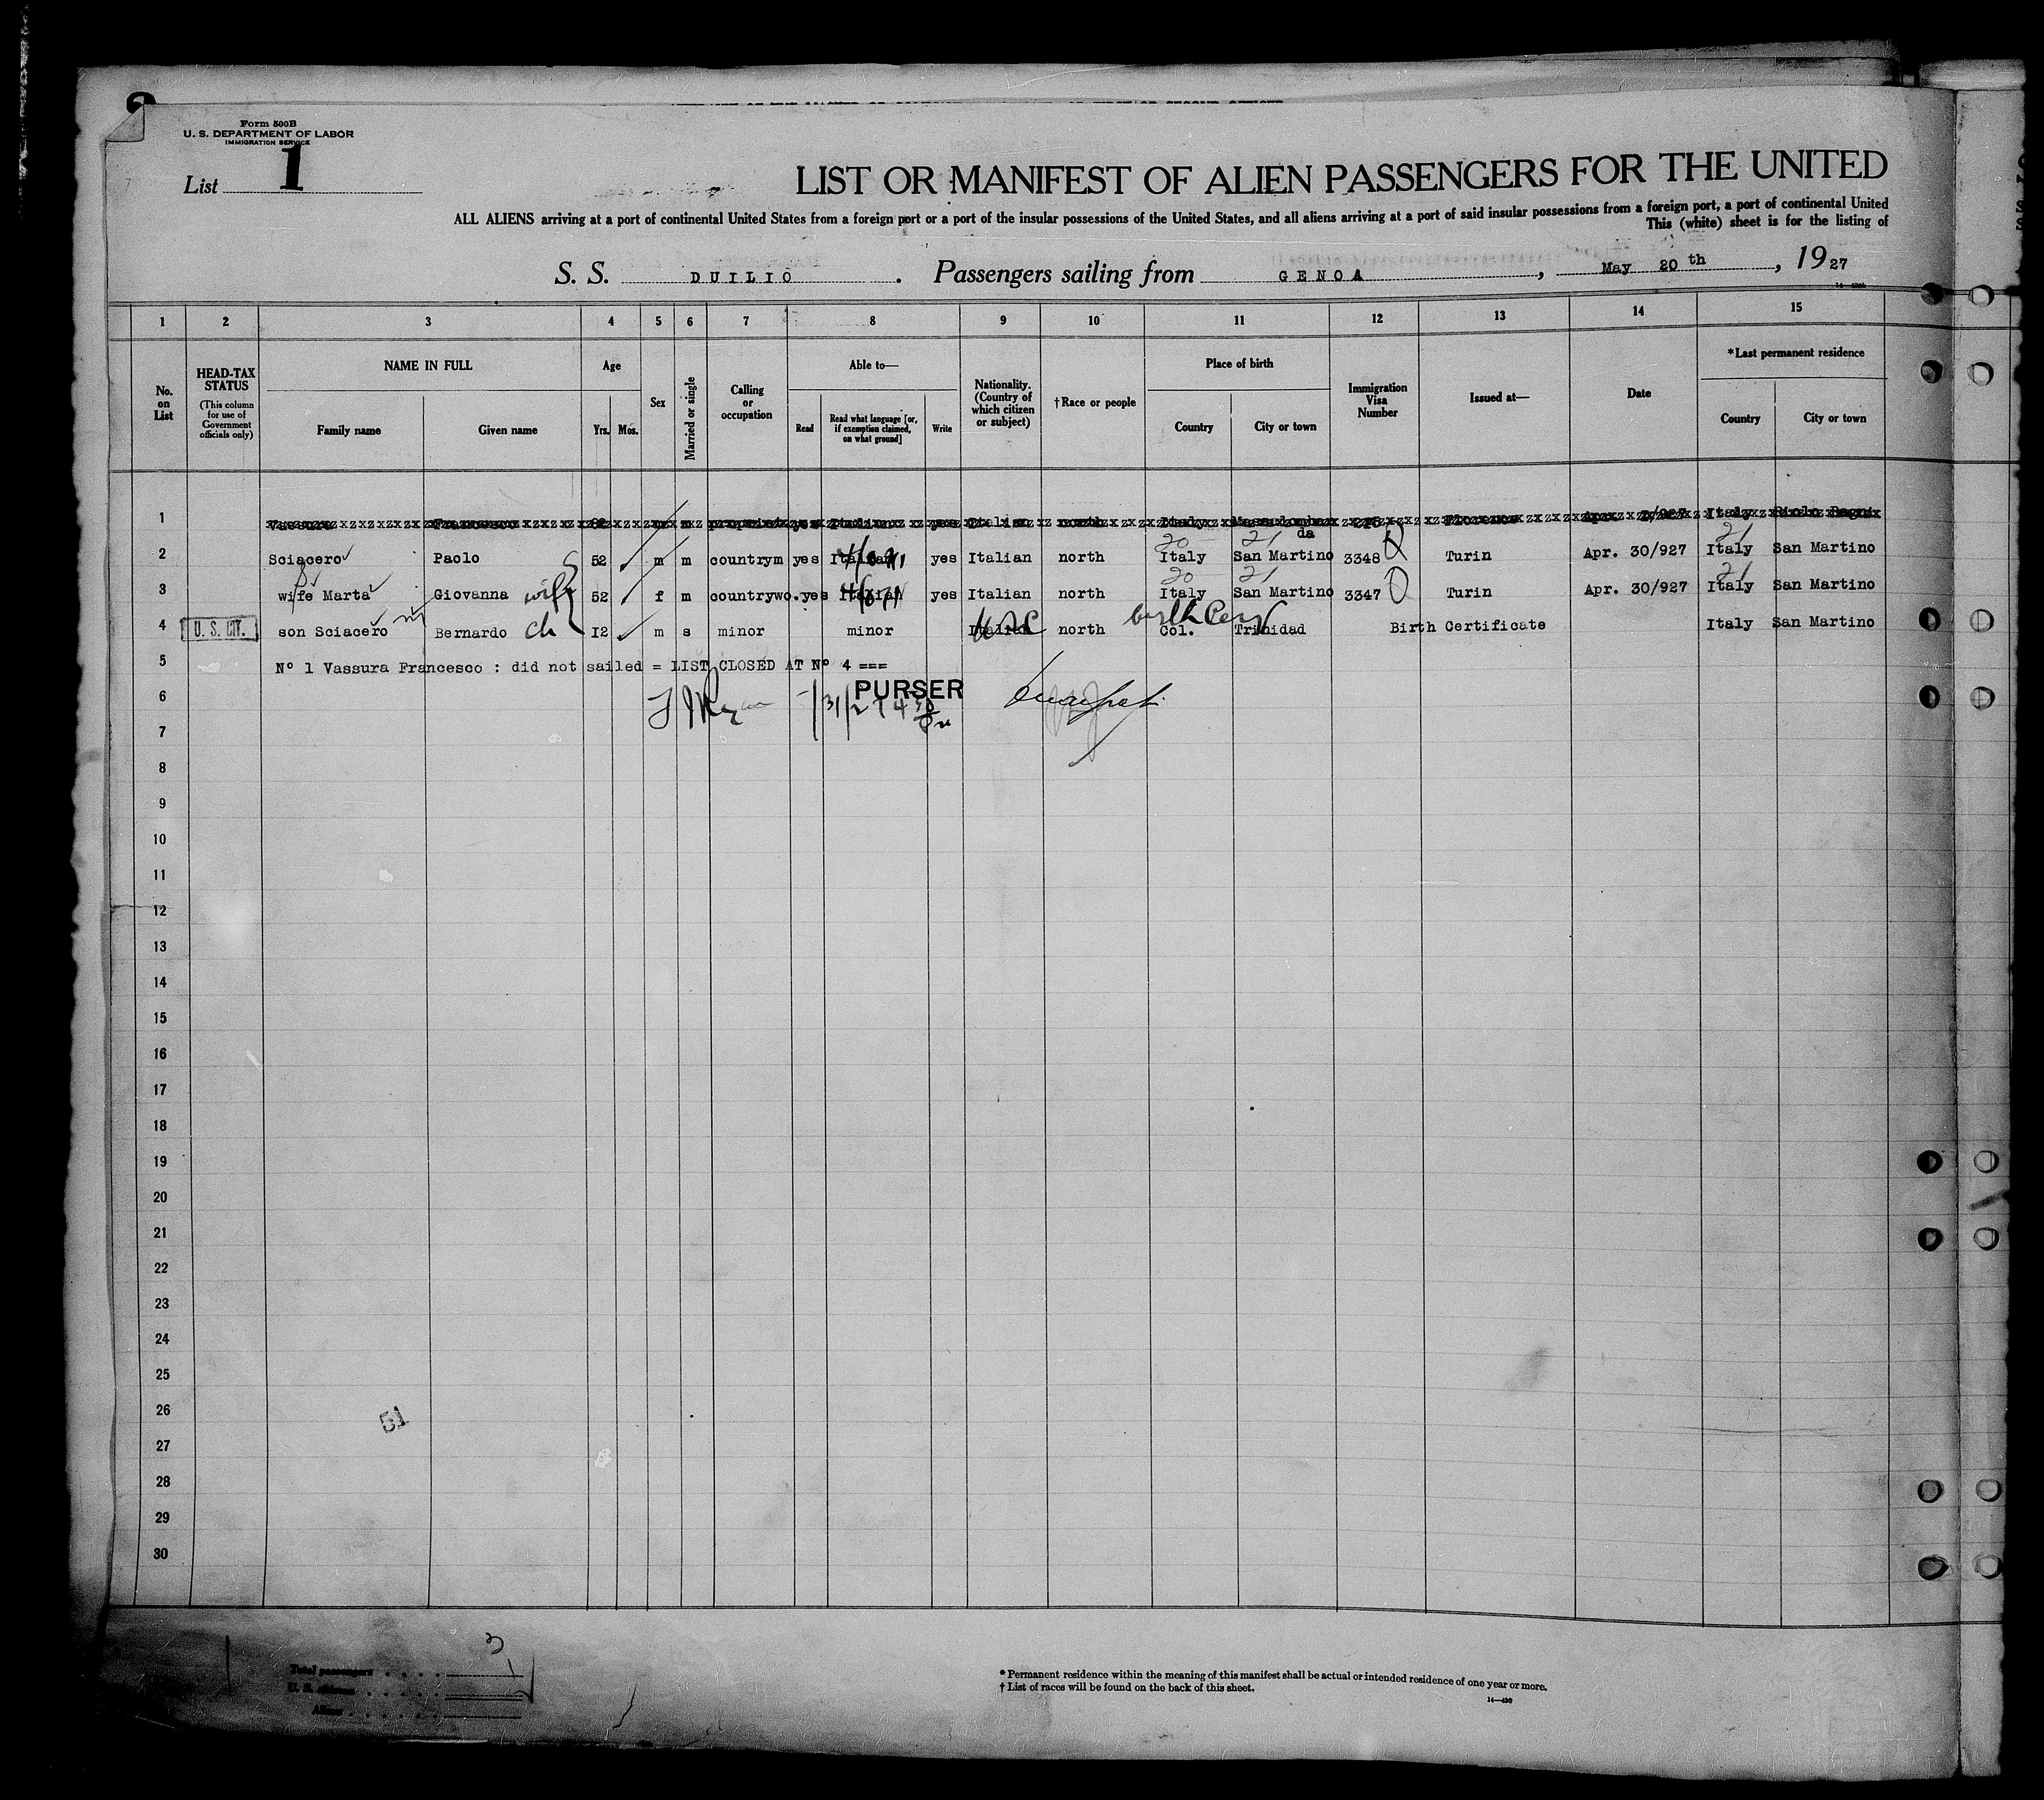 Form 500B
U. S. DEPARTMENT OF LABOR
IMMIGRATION SERVICE
List 1
LIST OR MANIFEST OF ALIEN PASSENGERS FOR THE UNITED
ALL ALIENS arriving at a port of continental United States from a foreign port or a port of the insular possessions of the United States, and all aliens arriving at a port of said insular possessions from a foreign port, a port of continental United
This (white) sheet is for the listing of
S. S. DUILIO . Passengers sailing from GENOA , May 20th , 1927
1 2 3 4 5 6 7 8 9 10 11 12 13 14 15
No. on List
HEAD-TAX STATUS (This column for use of Government officials only)
NAME IN FULL
Family name
Given name
Age
Yrs. Mos.
Sex
Married or single
Calling or occupation
Able to—
Read
Read what language [or, if exemption claimed, on what ground]
Write
Nationality. (Country of which citizen or subject)
†Race or people
Place of birth
Country
City or town
Immigration Visa Number
Issued at—
Date
*Last permanent residence
Country
City or town
1 Vassura Francesco m m yes Italian yes Italian north Italy Florence Italy
da
20 21 21
2 Sciacero Paolo 52 m m countrym yes Italian yes Italian north Italy San Martino 3348 Turin Apr. 30/927 Italy San Martino
20 21 21
3 wife Marta Giovanna wife 52 f m countrywo. yes Italian yes Italian north Italy San Martino 3347 Turin Apr. 30/927 Italy San Martino
4 U. S. CIT. son Sciacero Bernardo ch 12 m s minor minor Italian north Col. Trinidad Birth Certificate Italy San Martino
5 Nº 1 Vassura Francesco : did not sailed = LIST CLOSED AT Nº 4 ===
6 PURSER
7
8
9
10
11
12
13
14
15
16
17
18
19
20
21
22
23
24
25
26
51
27
28
29
30
3
Total passengers
U. S. citizens
Aliens
* Permanent residence within the meaning of this manifest shall be actual or intended residence of one year or more.
† List of races will be found on the back of this sheet.